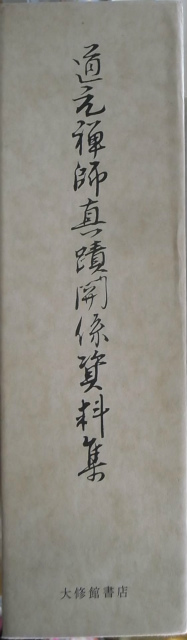 道元禅師真蹟関係資料集
大修館書店